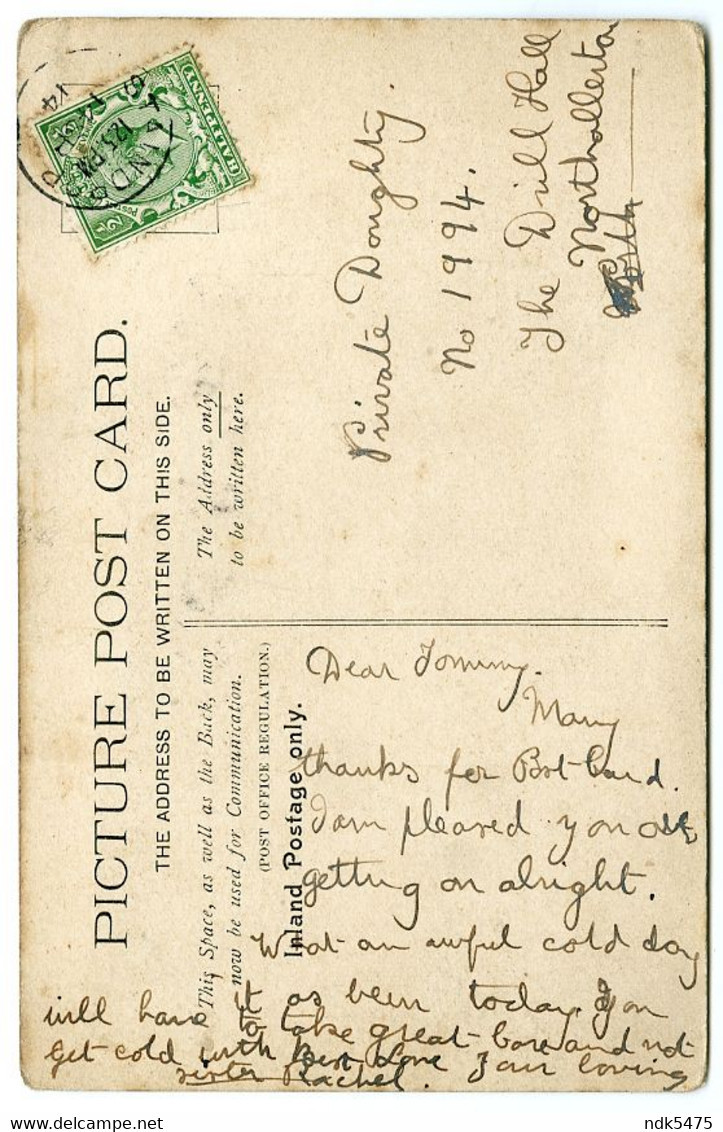 PICTURE POST CARD.
THE ADDRESS TO BE WRITTEN ON THIS SIDE.
This Space, as well as the Back, may
now be used for Communication.
(POST OFFICE REGULATION.)
Inland Postage only.
The Address only
to be written here.
HALFPENNY
Private Doughty.
No 1994.
The Drill Hall
Northallerton
Dear Tommy.
Many
thanks for Post Card.
I am pleased you are
getting on alright.
What an awful cold day
it as been today. You
will have to take great care and not
get cold with Best Love your loving
sister Rachel.
ndk5475